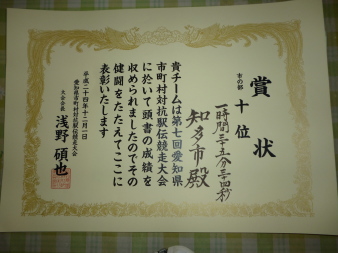 賞状
市の部
十位
一時間三十五分三十四秒
知多市殿
貴チームは第七回愛知県
市町村対抗駅伝競走大会
に於いて頭書の成績を
収められましたのでその
健闘をたたえてここに
表彰いたします
平成二十四年十二月一日
愛知県市町村対抗駅伝競走大会
大会会長 浅野碩也